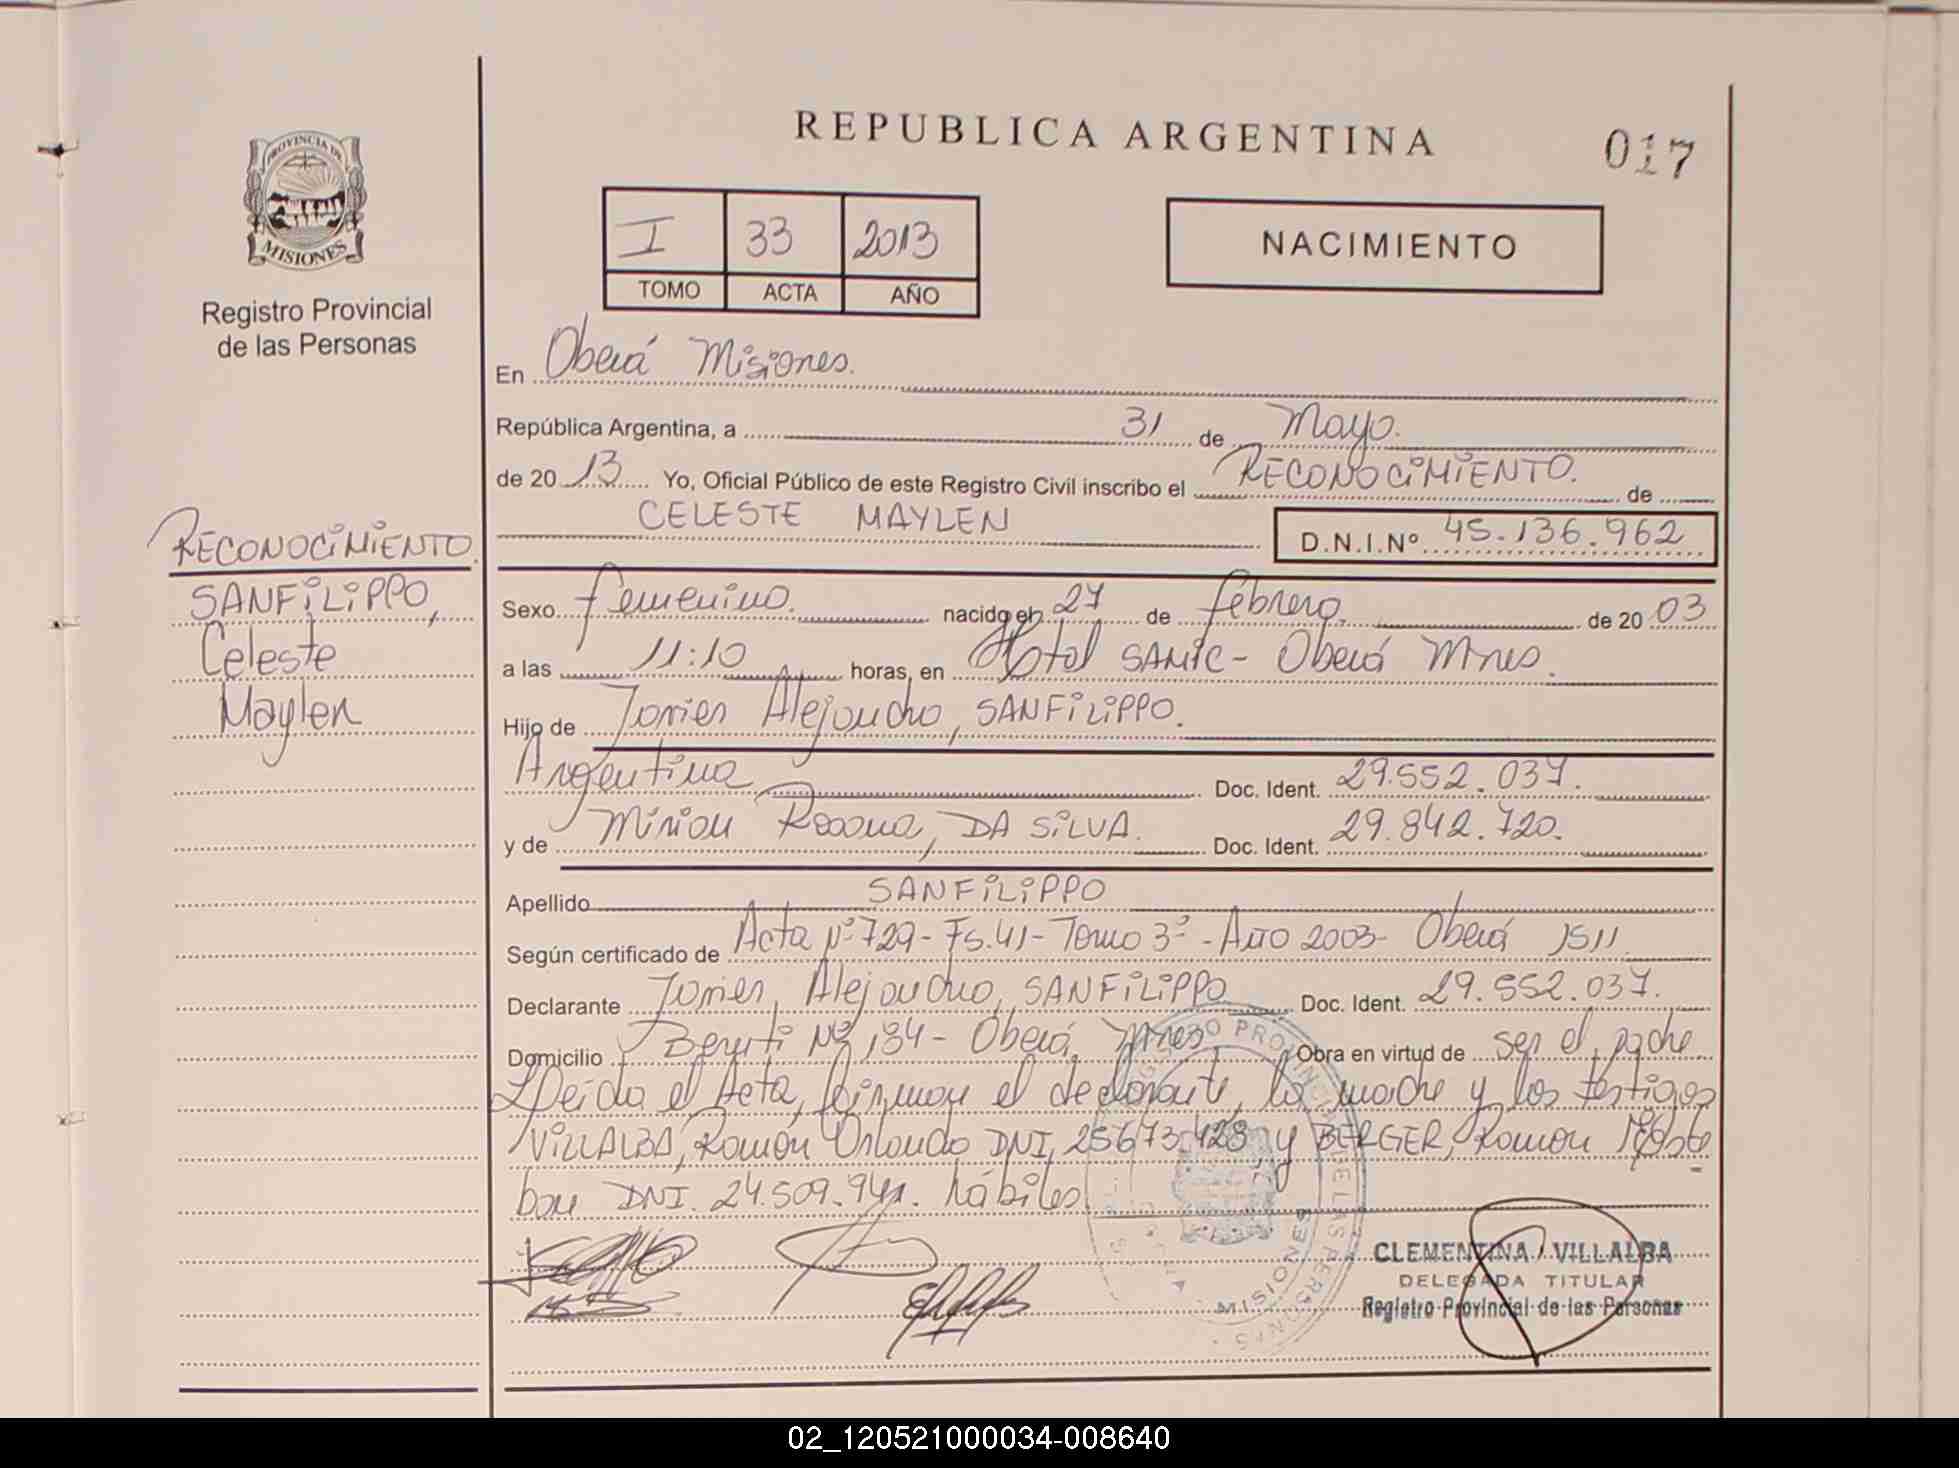 REPUBLICA ARGENTINA
017
PROVINCIA DE
MISIONES
Registro Provincial
de las Personas
I 33 2013
TOMO ACTA AÑO
NACIMIENTO
En Oberá Misiones.
República Argentina, a 31 de Mayo.
de 2013 Yo, Oficial Público de este Registro Civil inscribo el RECONOCIMIENTO. de
CELESTE MAYLEN D.N.I.Nº 45.136.962
RECONOCIMIENTO.
SANFILIPPO,
Celeste
Maylen
Sexo femenino. nacido el 27 de febrero. de 2003
a las 11:10 horas, en Hptal SAMIC - Oberá Mnes.
Hijo de Javier Alejandro, SANFILIPPO.
Argentina Doc. Ident. 29.552.037.
y de Mirian Rosana, DA SILVA. Doc. Ident. 29.842.720.
Apellido SANFILIPPO
Según certificado de Acta Nº 729 - Fs. 41 - Tomo 3º - Año 2003 - Oberá 1511
Declarante Javier, Alejandro, SANFILIPPO Doc. Ident. 29.552.037.
Domicilio Beruti Nº 134 - Oberá, Mnes Obra en virtud de ser el padre
Leída el Acta, firman el declarante, la madre y los testigos
VILLALBA, Ramón Orlando DNI, 25673.428, y BERGER, Ramón
DNI. 24.509.941. hábiles
REGISTRO PROVINCIAL DE LAS PERSONAS
MISIONES
CLEMENTINA VILLALBA
DELEGADA TITULAR
Registro Provincial de las Personas
02_120521000034-008640